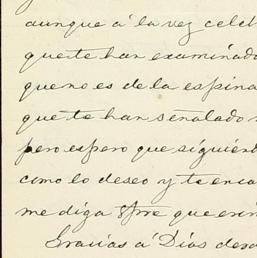 aunque á la vez celeb
que te han examinado
que no es de la espina
que te han señalado
pero espero que siguien
como lo deseo y te enca
me diga spre que
Gracias á Dios